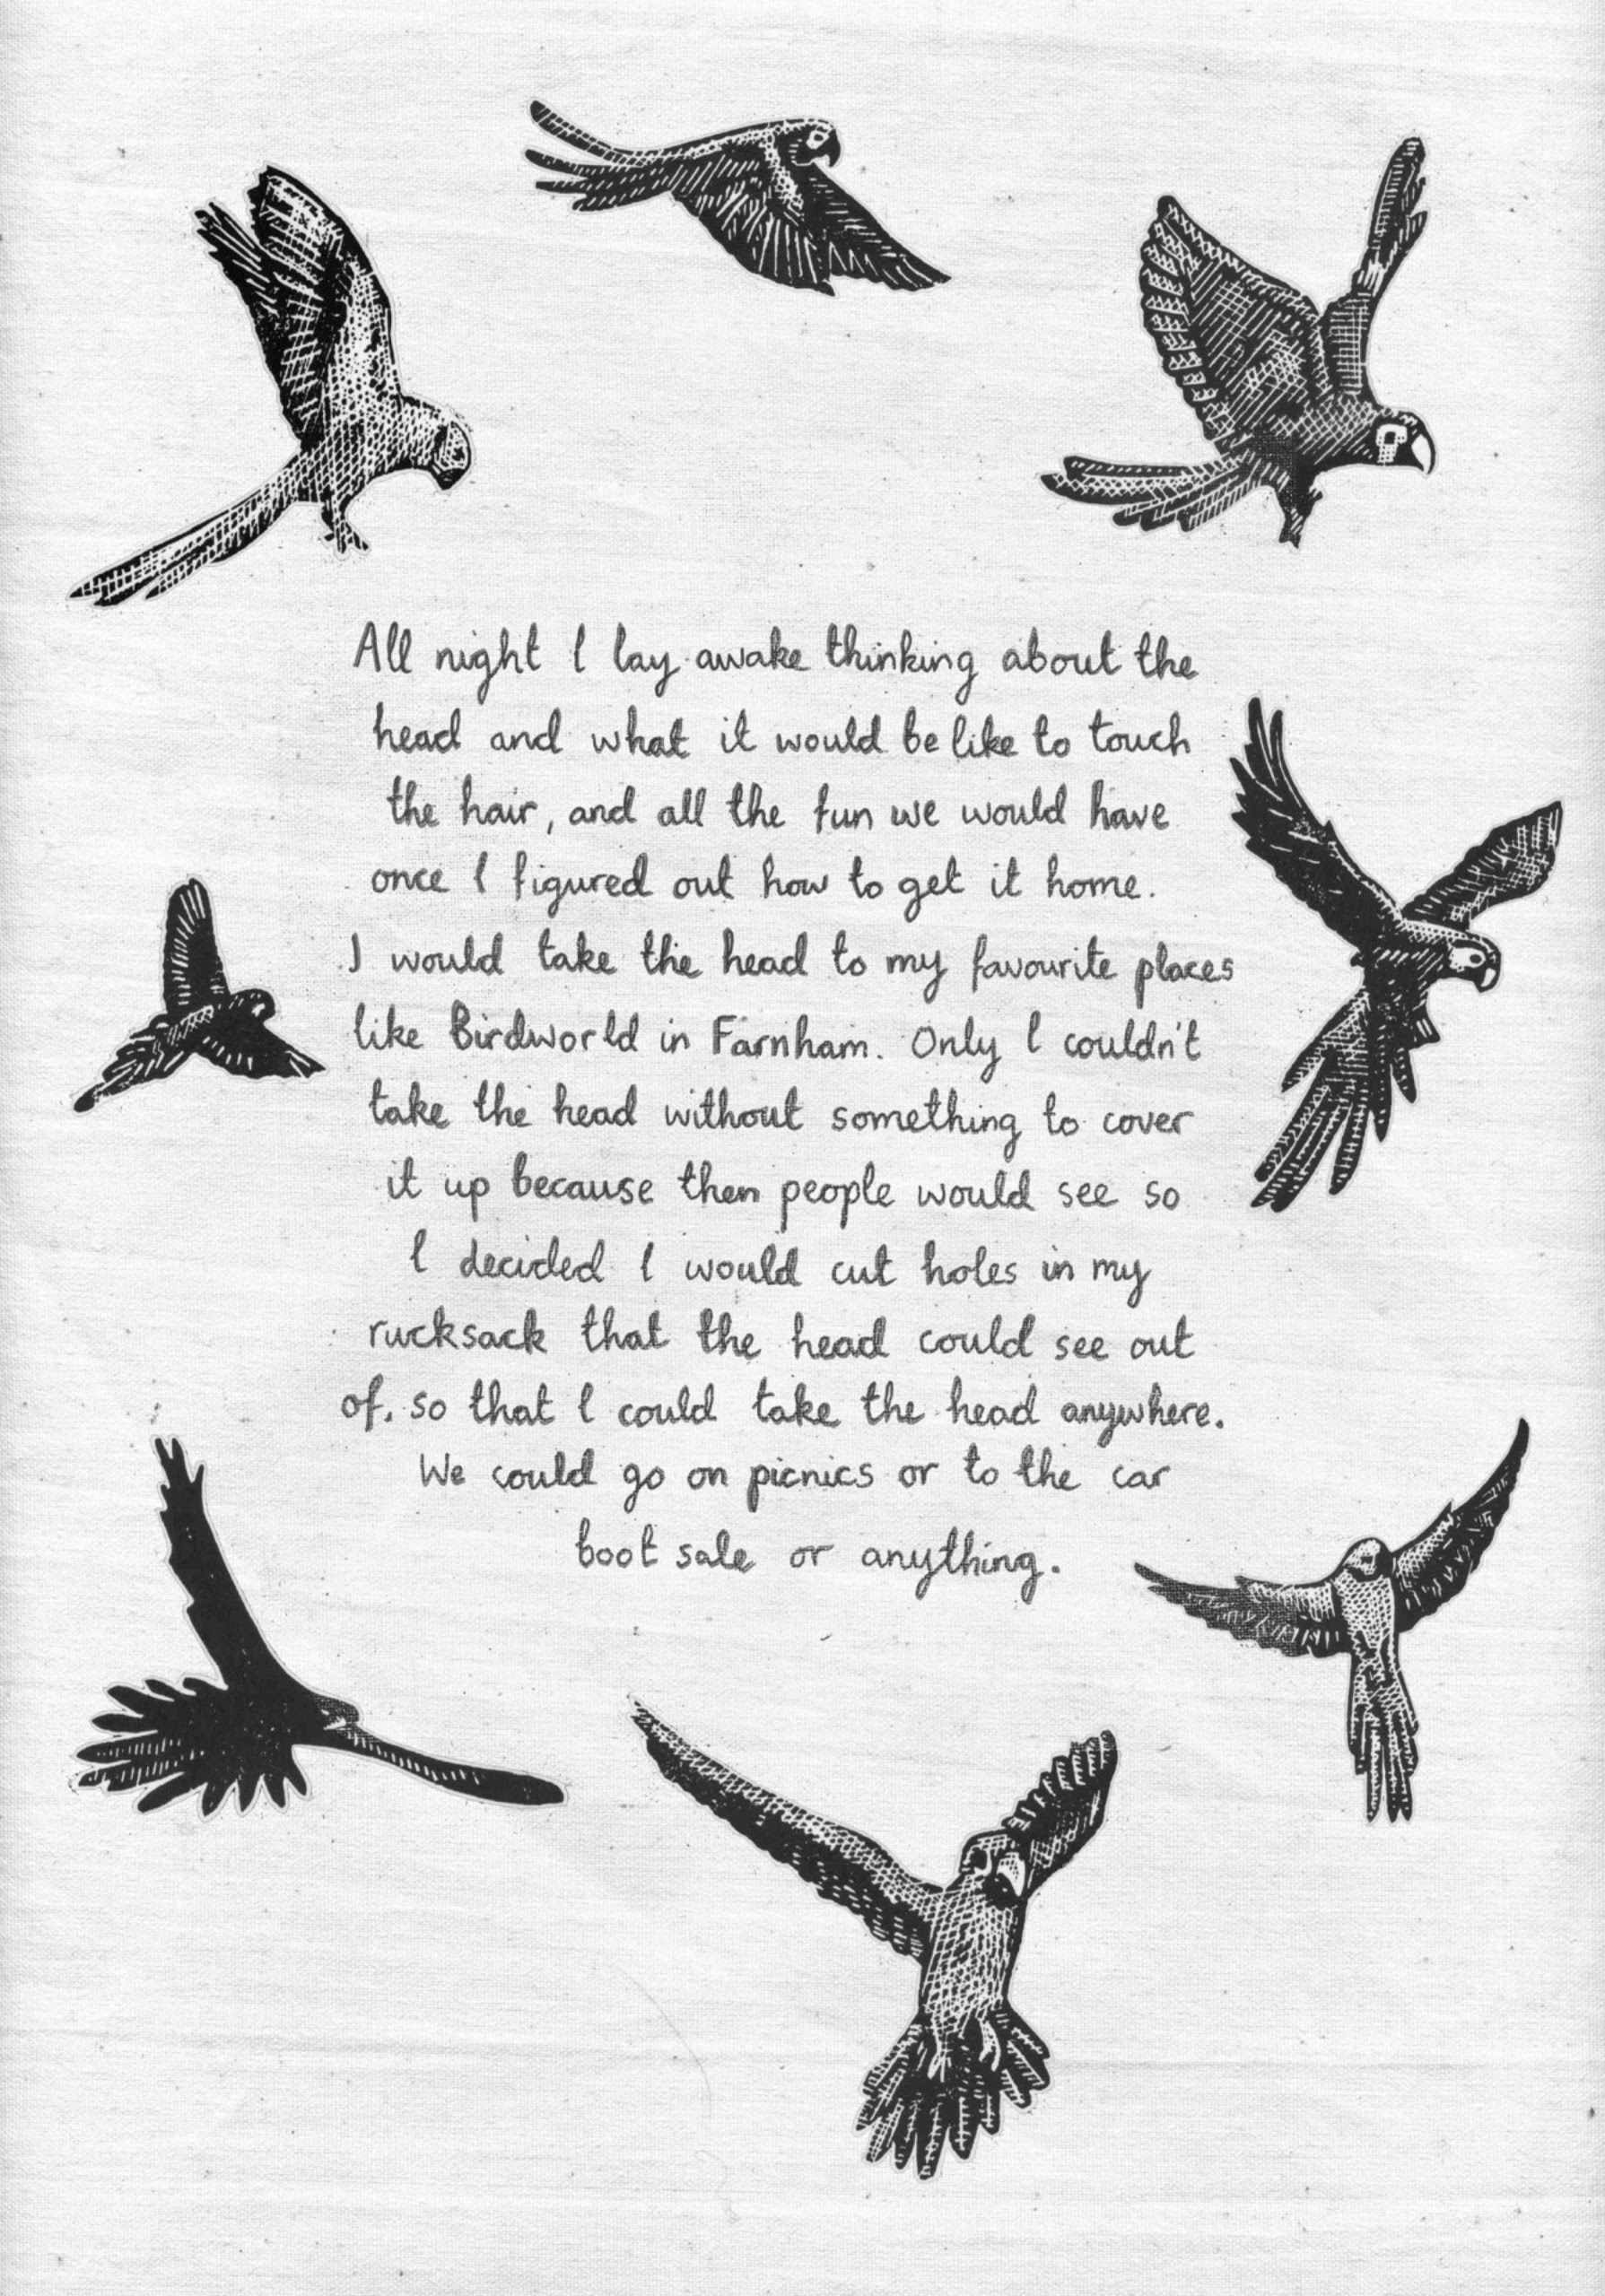 All night I lay awake thinking about the
head and what it would be like to touch
the hair, and all the fun we would have
once I figured out how to get it home.
I would take the head to my favourite places
like Birdworld in Farnham. Only I couldn't
take the head without something to cover
it up because then people would see so
I decided I would cut holes in my
rucksack that the head could see out
of, so that I could take the head anywhere.
We could go on picnics or to the car
boot sale or anything.